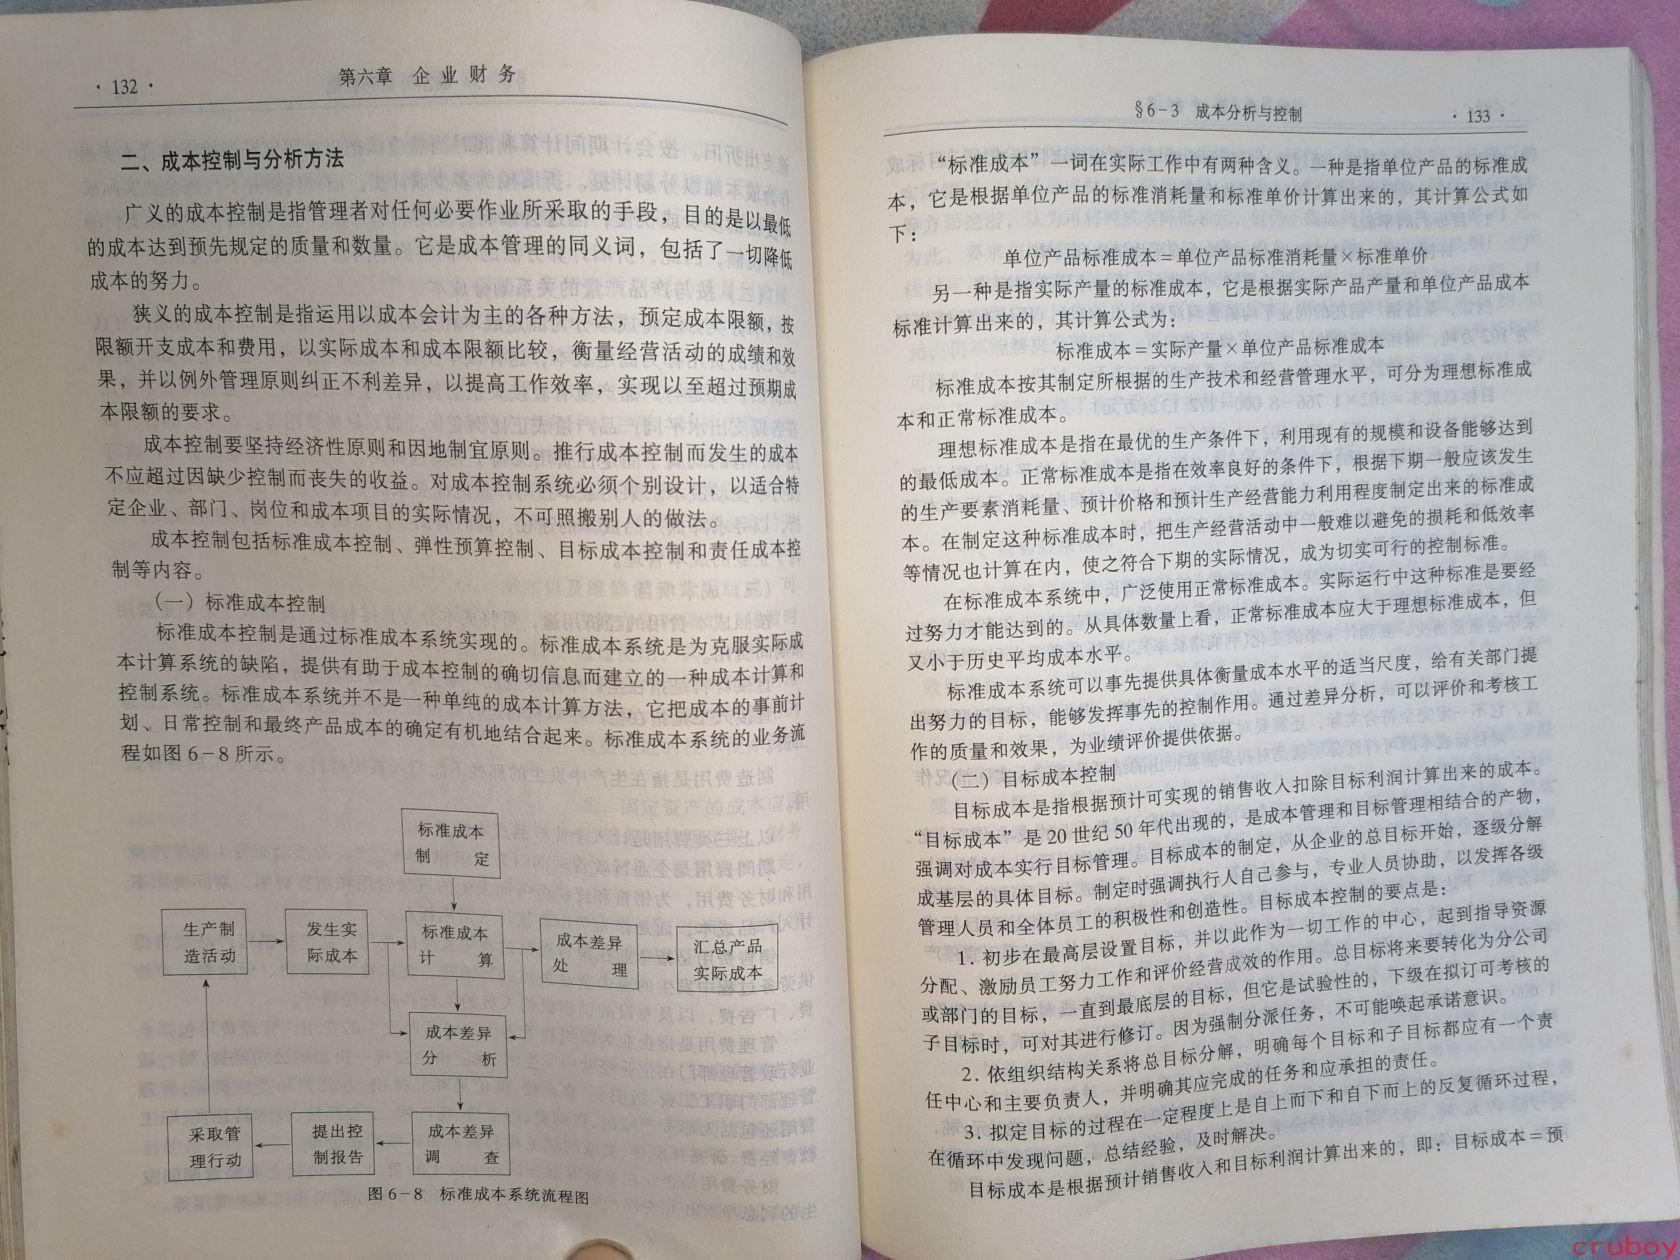 · 132 ·
第六章 企业财务
二、成本控制与分析方法
广义的成本控制是指管理者对任何必要作业所采取的手段，目的是以最低
的成本达到预先规定的质量和数量。它是成本管理的同义词，包括了一切降低
成本的努力。
狭义的成本控制是指运用以成本会计为主的各种方法，预定成本限额，按
限额开支成本和费用，以实际成本和成本限额比较，衡量经营活动的成绩和效
果，并以例外管理原则纠正不利差异，以提高工作效率，实现以至超过预期成
本限额的要求。
成本控制要坚持经济性原则和因地制宜原则。推行成本控制而发生的成本
不应超过因缺少控制而丧失的收益。对成本控制系统必须个别设计，以适合特
定企业、部门、岗位和成本项目的实际情况，不可照搬别人的做法。
成本控制包括标准成本控制、弹性预算控制、目标成本控制和责任成本控
制等内容。
（一）标准成本控制
标准成本控制是通过标准成本系统实现的。标准成本系统是为克服实际成
本计算系统的缺陷，提供有助于成本控制的确切信息而建立的一种成本计算和
控制系统。标准成本系统并不是一种单纯的成本计算方法，它把成本的事前计
划、日常控制和最终产品成本的确定有机地结合起来。标准成本系统的业务流
程如图 6-8 所示。
标准成本
制 定
生产制
造活动
发生实
际成本
标准成本
计 算
成本差异
处 理
汇总产品
实际成本
成本差异
分 析
采取管
理行动
提出控
制报告
成本差异
调 查
图 6-8 标准成本系统流程图
§6-3 成本分析与控制
· 133 ·
“标准成本”一词在实际工作中有两种含义。一种是指单位产品的标准成
本，它是根据单位产品的标准消耗量和标准单价计算出来的，其计算公式如
下：
单位产品标准成本＝单位产品标准消耗量×标准单价
另一种是指实际产量的标准成本，它是根据实际产品产量和单位产品成本
标准计算出来的，其计算公式为：
标准成本＝实际产量×单位产品标准成本
标准成本按其制定所根据的生产技术和经营管理水平，可分为理想标准成
本和正常标准成本。
理想标准成本是指在最优的生产条件下，利用现有的规模和设备能够达到
的最低成本。正常标准成本是指在效率良好的条件下，根据下期一般应该发生
的生产要素消耗量、预计价格和预计生产经营能力利用程度制定出来的标准成
本。在制定这种标准成本时，把生产经营活动中一般难以避免的损耗和低效率
等情况也计算在内，使之符合下期的实际情况，成为切实可行的控制标准。
在标准成本系统中，广泛使用正常标准成本。实际运行中这种标准是要经
过努力才能达到的。从具体数量上看，正常标准成本应大于理想标准成本，但
又小于历史平均成本水平。
标准成本系统可以事先提供具体衡量成本水平的适当尺度，给有关部门提
出努力的目标，能够发挥事先的控制作用。通过差异分析，可以评价和考核工
作的质量和效果，为业绩评价提供依据。
（二）目标成本控制
目标成本是指根据预计可实现的销售收入扣除目标利润计算出来的成本。
“目标成本”是 20 世纪 50 年代出现的，是成本管理和目标管理相结合的产物，
强调对成本实行目标管理。目标成本的制定，从企业的总目标开始，逐级分解
成基层的具体目标。制定时强调执行人自己参与，专业人员协助，以发挥各级
管理人员和全体员工的积极性和创造性。目标成本控制的要点是：
1. 初步在最高层设置目标，并以此作为一切工作的中心，起到指导资源
分配、激励员工努力工作和评价经营成效的作用。总目标将来要转化为分公司
或部门的目标，一直到最底层的目标，但它是试验性的，下级在拟订可考核的
子目标时，可对其进行修订。因为强制分派任务，不可能唤起承诺意识。
2. 依组织结构关系将总目标分解，明确每个目标和子目标都应有一个责
任中心和主要负责人，并明确其应完成的任务和应承担的责任。
3. 拟定目标的过程在一定程度上是自上而下和自下而上的反复循环过程，
在循环中发现问题，总结经验，及时解决。
目标成本是根据预计销售收入和目标利润计算出来的，即：目标成本＝预
cruboy